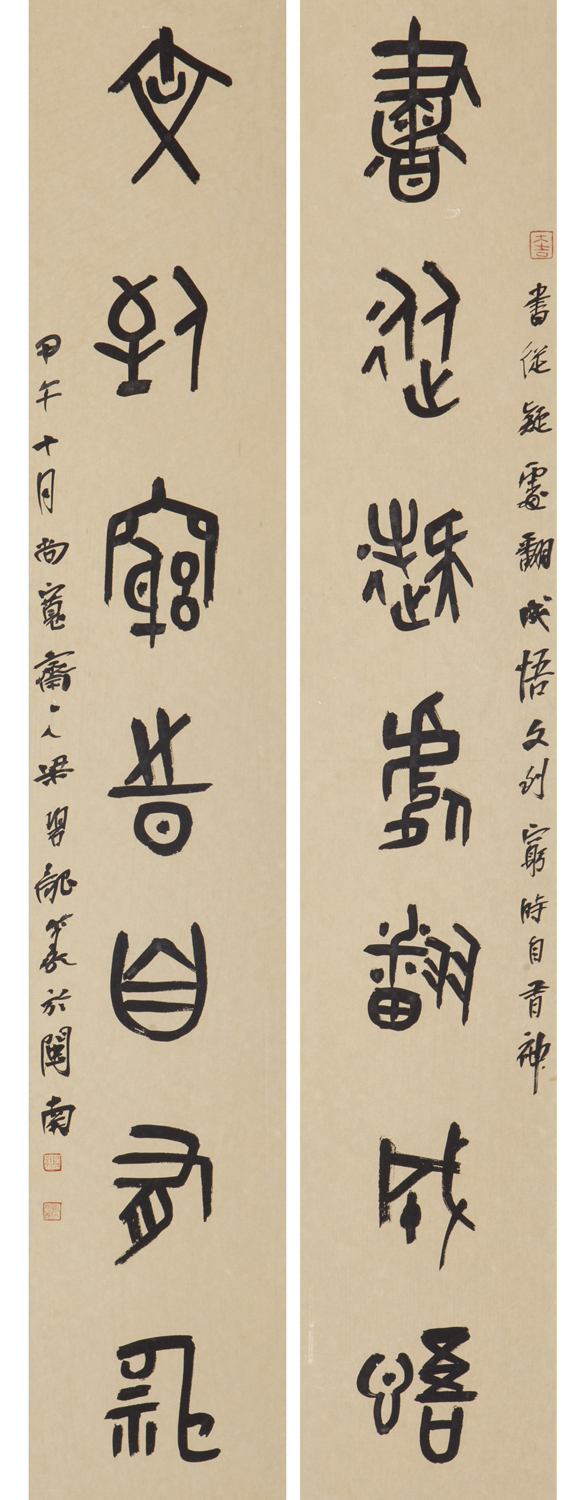 大吉
書從疑處翻成悟文到窮時自有神
書從疑處翻成悟
文到窮時自有神
甲午十月尚齋人梁篆於閩南